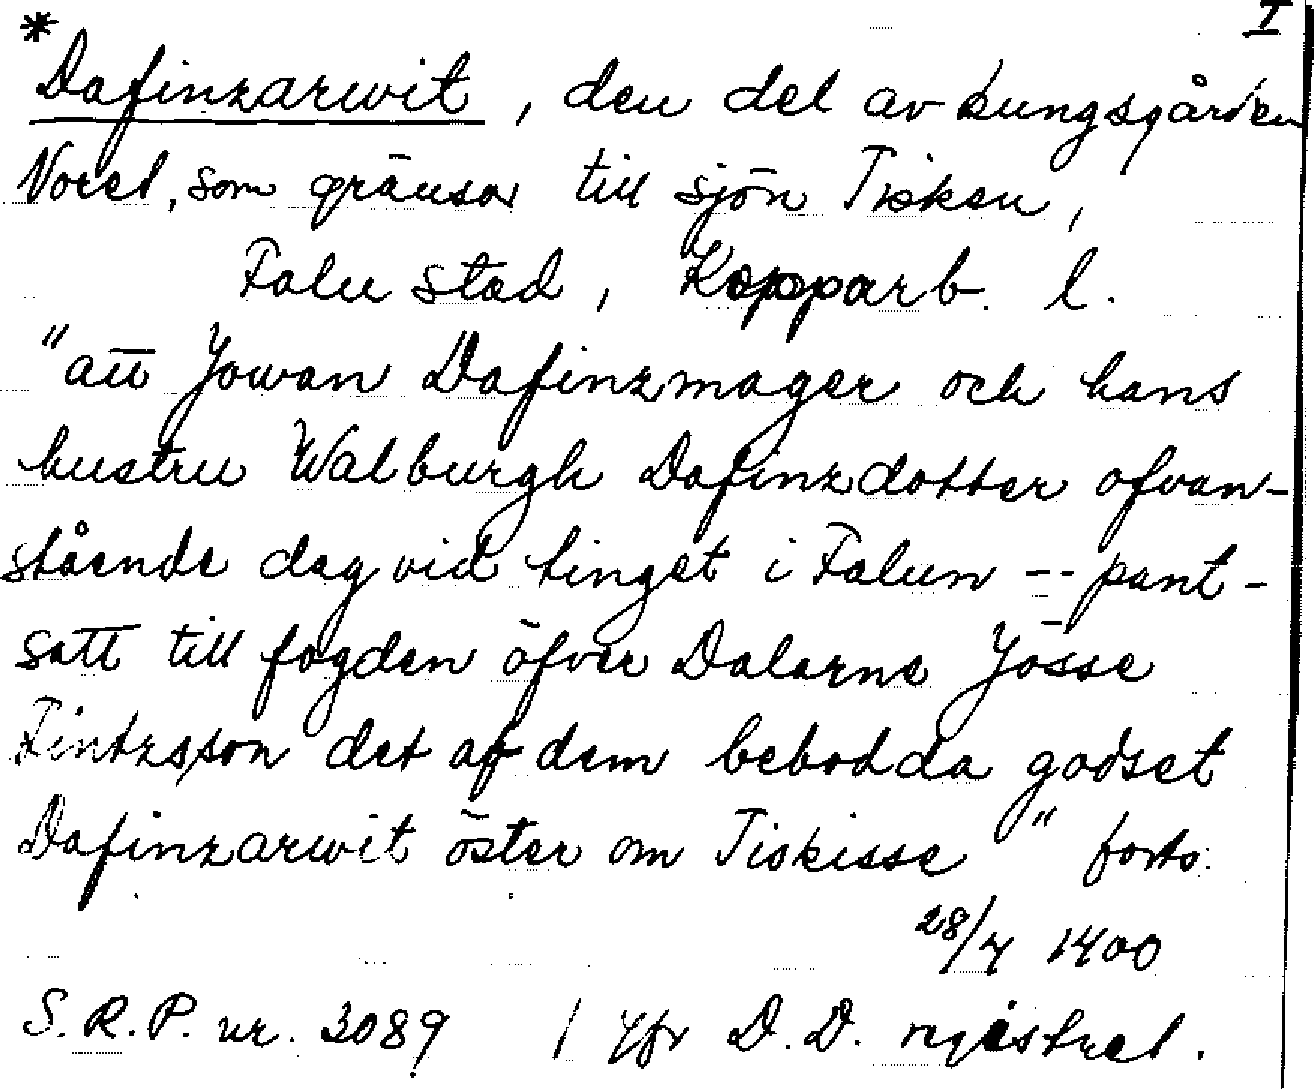 * I
Dafinzarwit, den del av kungsgården
Norel, som gränsar till sjön Tisken,
Falu stad, Kopparb. l.
"att Jowan Dafinzmager och hans
hustru Walburgh Dafinzdotter ofvan-
stående dag vid tinget i Falun -- pant-
satt till fogden öfver Dalarne Jösse
Fintzsson det af dem bebodda godset
Dafinzarwit öster om Tiskisse" forts.
28/4 1400
S.R.P. nr. 3089 / Jfr D.D. registret.